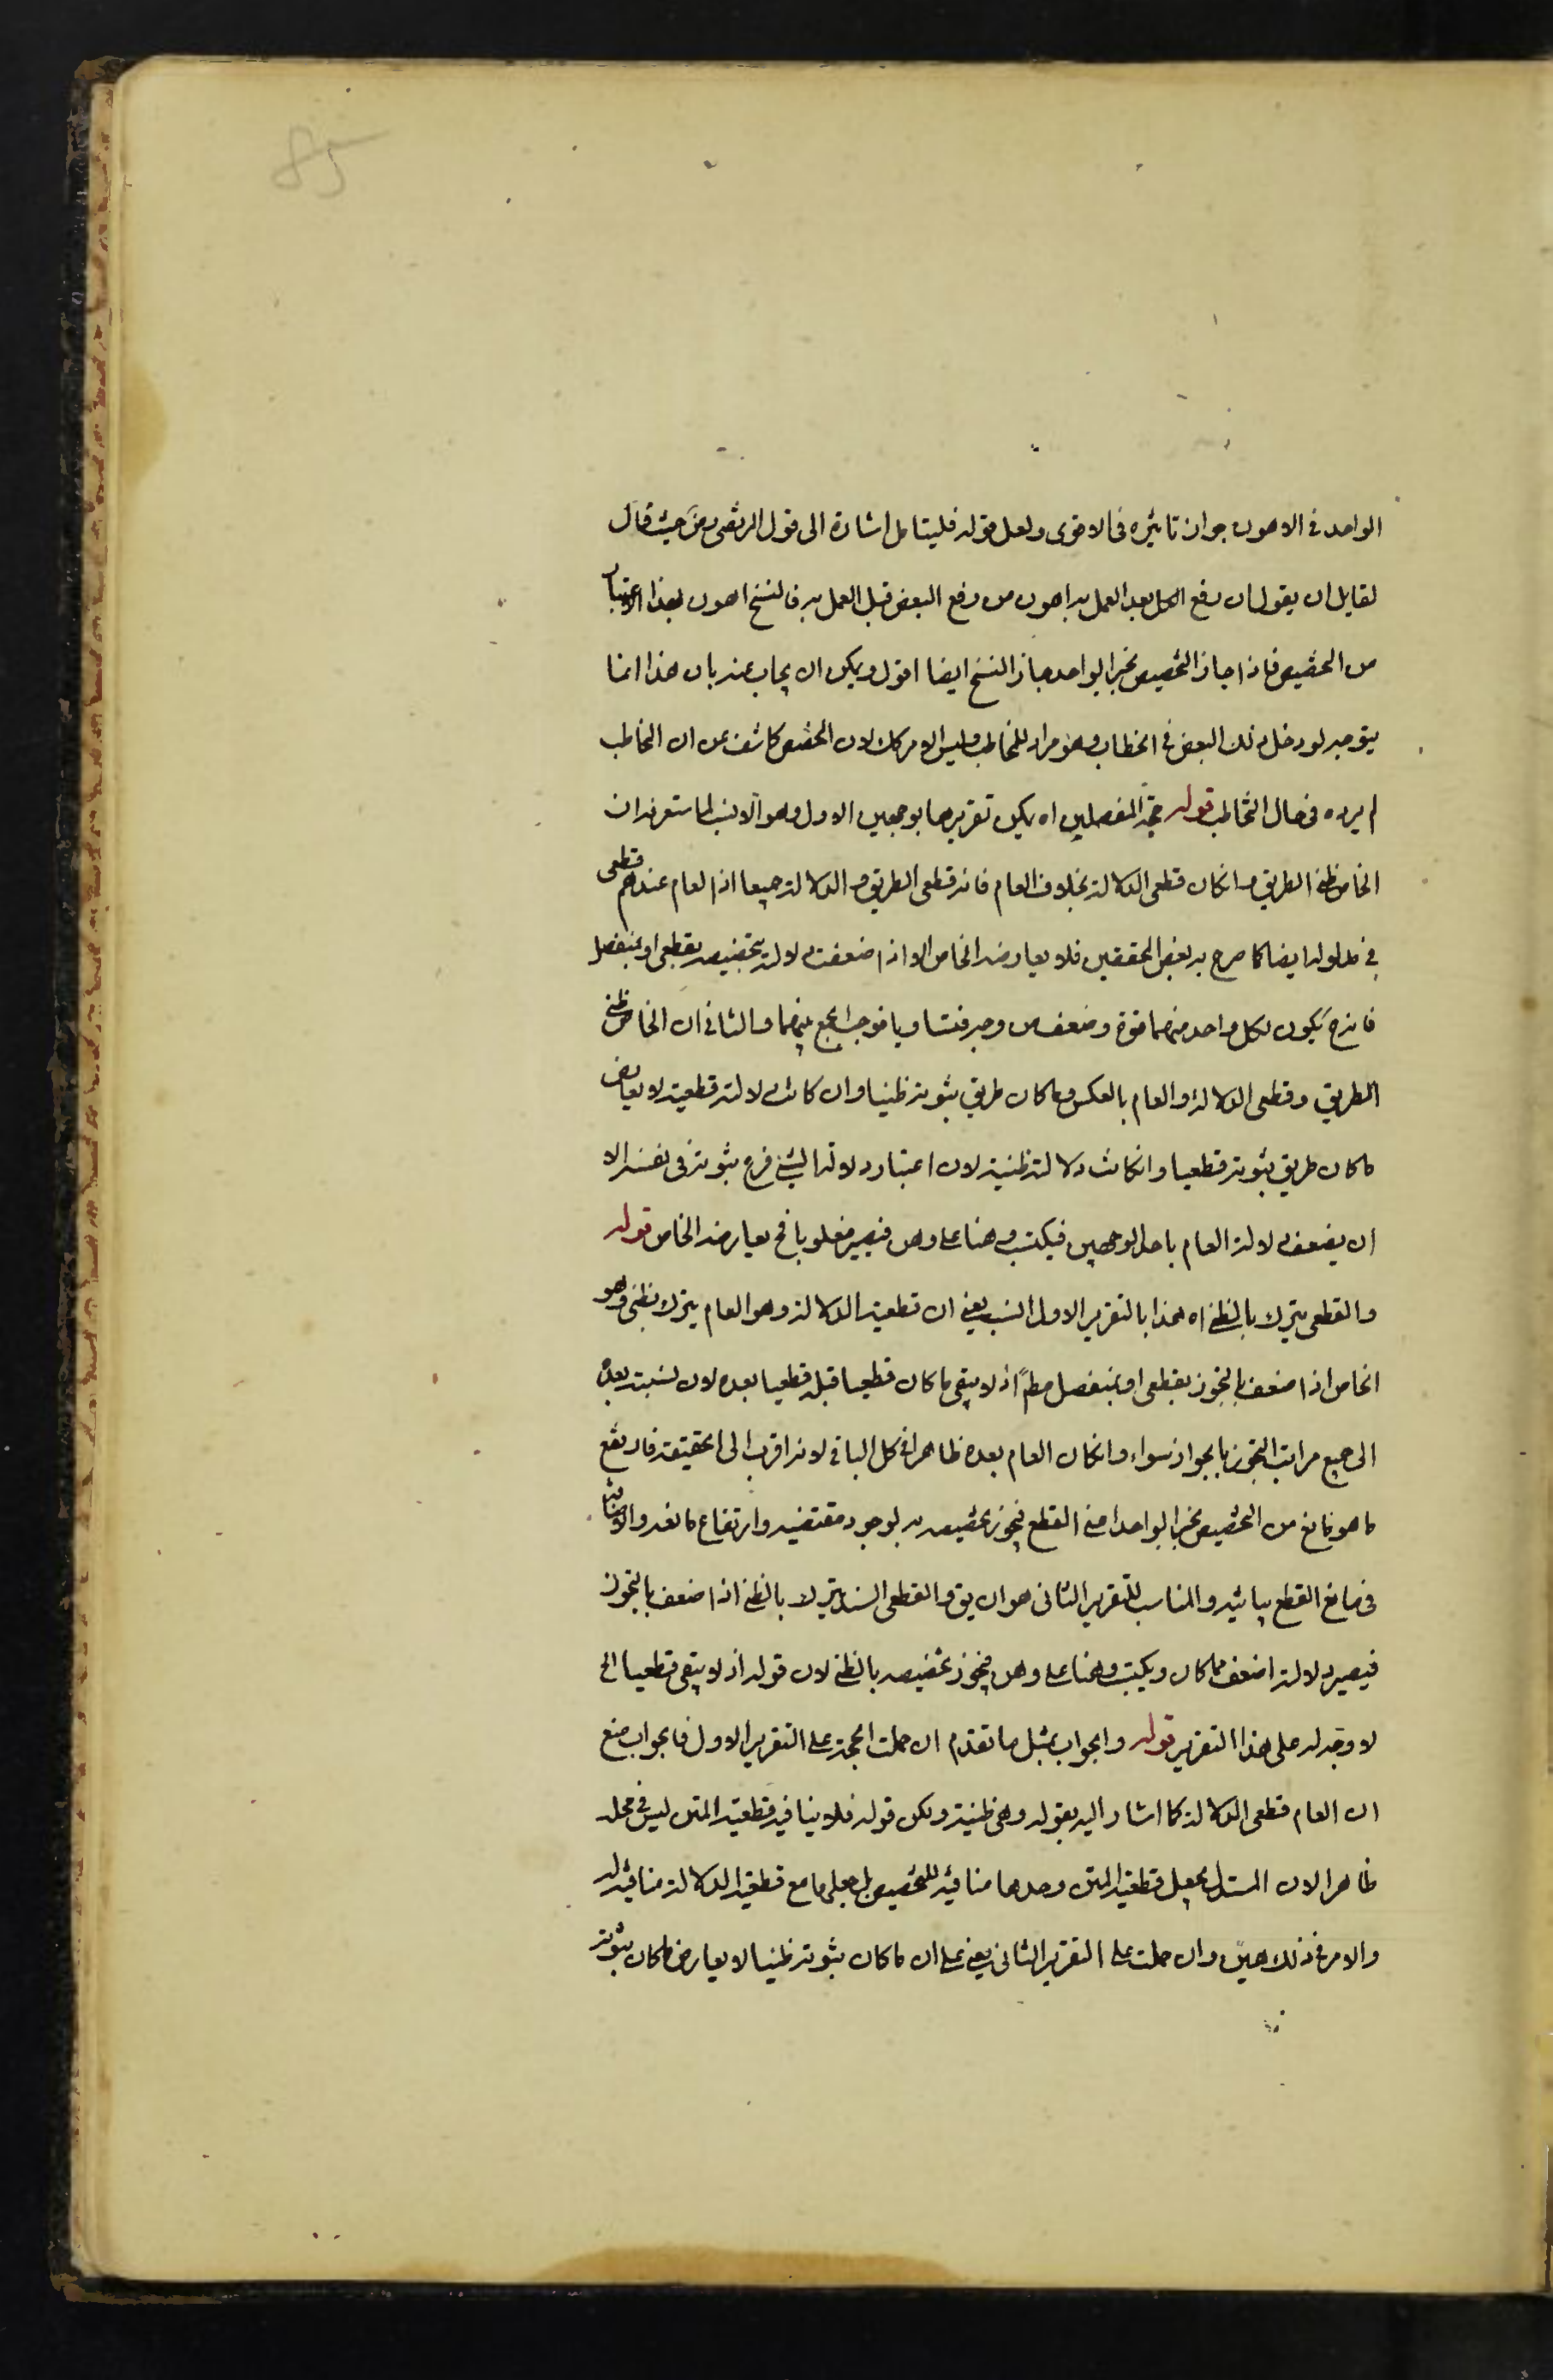 85
الواحد في الاهون جواز تاثيره في الاقوى ولعل قوله فليتامل اشارة الى قول المرتضى رض حيث قال
لقايل ان يقول ان رفع الكل بعد العمل به اهون من رفع البعض قبل العمل به فالنسخ اهون بهذا الاعتبار
من التخصيص فاذا جاز التخصيص بخبر الواحد جاز النسخ ايضا اقول ويمكن ان يجاب عنه بان هذا انما
يتوجه لو دخل ذلك البعض في الخطاب وهو مراد للمخاطب وليس الامر كك لان التخصيص كاشف عن ان المخاطب
لم يرده في حال التخاطب قوله حجة المفصلين اه يمكن تقريرها بوجهين الاول وهو الانسب لما ستعرفه ان
الخاص ظني الطريق وانكان قطعي الدلالة بخلاف العام فانه قطعي الطريق والدلالة جميعا اذ العام عندهم قطعي
في مدلوله ايضا كما صرح به بعض المحققين فلا يعارضه الخاص الا اذا ضعفت دلالته بتخصيصه بقطعي او بمنفصل
فانه ح يكون لكل واحد منهما قوة وضعف من وجه فتساويا فوجب الجمع بينهما والثاني ان الخاص ظني
الطريق وقطعي الدلالة والعام بالعكس وما كان طريق ثبوته ظنيا وان كانت دلالته قطعية لا يعارض
ما كان طريق ثبوته قطعيا وانكانت دلالته ظنية لان اعتبار دلالة الشيء فرع ثبوته في نفسه الا
ان يضعف دلالة العام باحد الوجهين فيكتسب وهنا على وهن فيصير مغلوبا فح يعارضه الخاص قوله
والقطعي يترك بالظني اه هذا بالتقرير الاول انسب يعني ان قطعية الدلالة وهو العام يترك بظني وهو
الخاص اذا ضعف بالتجوز بقطعي او بمنفصل مطا اذ لا يبقى ما كان قطعيا قبله قطعيا بعده لان نسبته بعده
الى جميع مراتب التجوز بالجواز سواء وانكان العام بعده ظاهرا في كل الباقي لانه اقرب الى الحقيقة فارتفع
ما هو مانع من التخصيص بخبر الواحد اعني القطع فيجوز تخصيصه به لوجود مقتضيه وارتفاع مانعه والاضافة
في مانع القطع بيانية والمناسب للتقرير الثاني هو ان يق والقطعي السند يترك بالظني اذا ضعف بالتجوز
فيصير دلالته اضعف مما كان ويكتسب وهنا على وهن فيجوز تخصيصه بالظني لان قوله اذ لا يبقى قطعيا الخ
لا وجه له على هذا التقرير قوله والجواب بمثل ما تقدم ان حملت الحجة على التقرير الاول فالجواب منع
ان العام قطعي الدلالة كما اشار اليه بقوله وهي ظنية ولكن قوله فلا ينافيه قطعية المتن ليس في محله
ظاهرا لان المستدل لم يجعل قطعية المتن وحدها منافية للتخصيص بل جعلها مع قطعية الدلالة منافية له
والامر في ذلك هين وان حملت على التقرير الثاني يعني على ان ما كان ثبوته ظنيا لا يعارض ما كان ثبوته